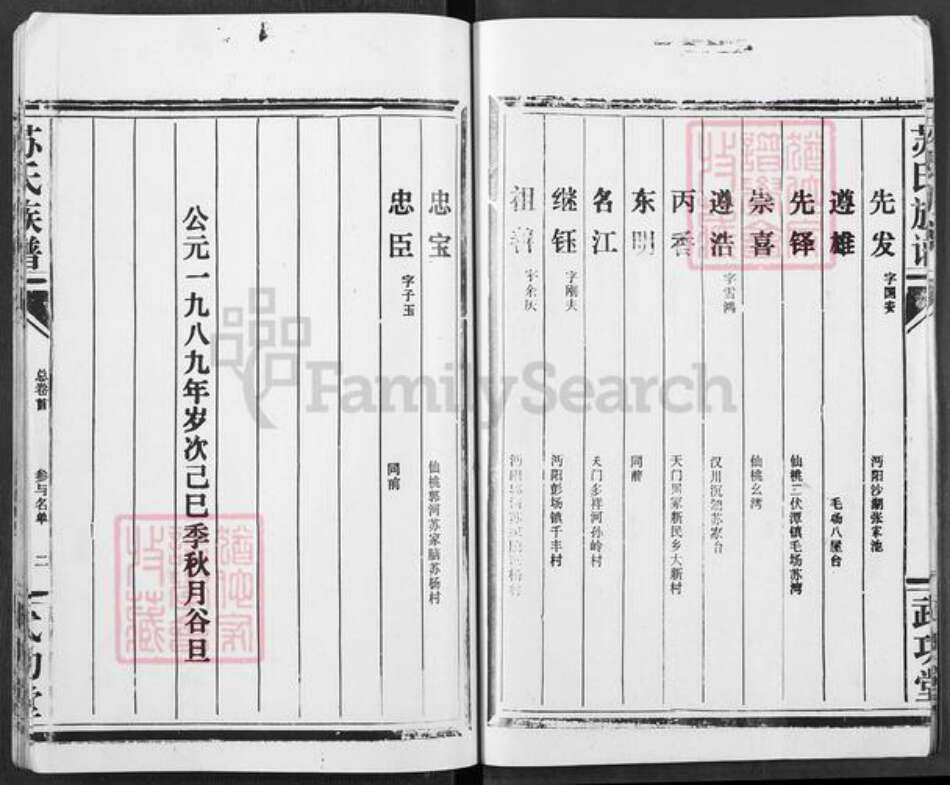 苏氏族谱
武功堂
先发 字国安 沔阳沙湖张家池
遵雄 毛场八屋台
先铎 仙桃三伏潭镇毛场苏湾
崇喜 仙桃幺湾
遵浩 字雪鸿 汉川沉湖苏家台
丙香 天门黑冢新民乡大新村
东明 同前
名江 天门多祥河孙岭村
继钰 字刚夫 沔阳彭场镇千丰村
祖善 字余庆
忠宝 仙桃郭河苏家脑苏杨村
忠臣 字子玉 同前
公元一九八九年岁次己巳季秋月谷旦
苏氏族谱
总卷首
参与名单
二
武功堂
FamilySearch